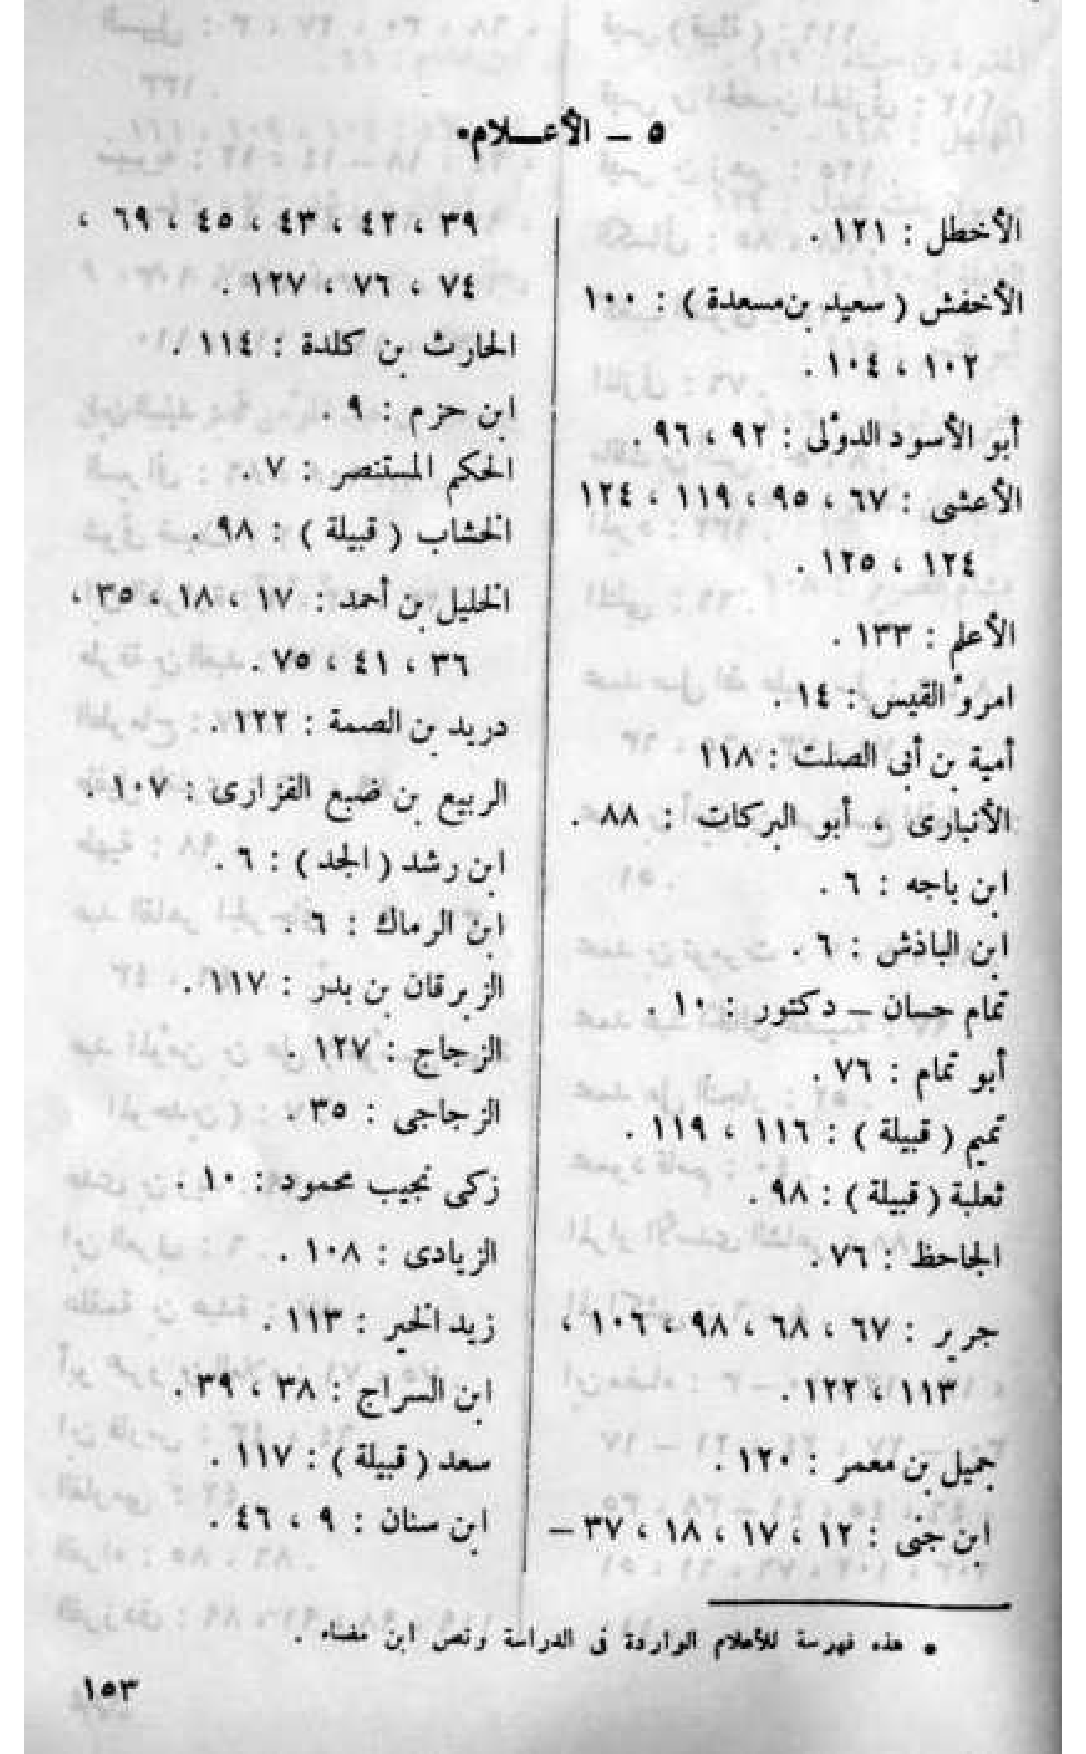 ٥ – الأعـلام*
الأخطل : ١٢١ .
الأخفش ( سعيد بن مسعدة ) : ١٠٠
١٠٢ ، ١٠٤ .
أبو الأسود الدؤلى : ٩٢ ، ٩٦ .
الأعشى : ٦٧ ، ٩٥ ، ١١٩ ، ١٢٤
١٢٤ ، ١٢٥ .
الأعلم : ١٣٣ .
امرؤ القيس : ١٤ .
أمية بن أبى الصلت : ١١٨
الأنبارى ، أبو البركات : ٨٨ .
ابن باجه : ٦ .
ابن الباذش : ٦ .
تمام حسان – دكتور : ١٠ .
أبو تمام : ٧٦ .
تميم ( قبيلة ) : ١١٦ ، ١١٩ .
ثعلبة ( قبيلة ) : ٩٨ .
الجاحظ : ٧٦ .
جرير : ٦٧ ، ٦٨ ، ٩٨ ، ١٠٦ ،
١١٣ ، ١٢٢ .
جميل بن معمر : ١٢٠ .
ابن جنى : ١٢ ، ١٧ ، ١٨ ، ٣٧ –
٣٩ ، ٤٢ ، ٤٣ ، ٤٥ ، ٦٩ ،
٧٤ ، ٧٦ ، ١٢٧ .
الحارث بن كلدة : ١١٤ .
ابن حزم : ٩ .
الحكم المستنصر : ٧ .
الخشاب ( قبيلة ) : ٩٨ .
الخليل بن أحمد : ١٧ ، ١٨ ، ٣٥ ،
٣٦ ، ٤١ ، ٧٥ .
دريد بن الصمة : ١٢٢ .
الربيع بن ضبع الفزارى : ١٠٧ .
ابن رشد ( الجد ) : ٦ .
ابن الرماك : ٦ .
الزبرقان بن بدر : ١١٧ .
الزجاج : ١٢٧ .
الزجاجى : ٣٥ .
زكى نجيب محمود : ١٠ .
الزيادى : ١٠٨ .
زيد الخير : ١١٣ .
ابن السراج : ٣٨ ، ٣٩ .
سعد ( قبيلة ) : ١١٧ .
ابن سنان : ٩ ، ٤٦ .
* هذه فهرسة للأعلام الواردة فى الدراسة ونص ابن مضاء .
١٥٣